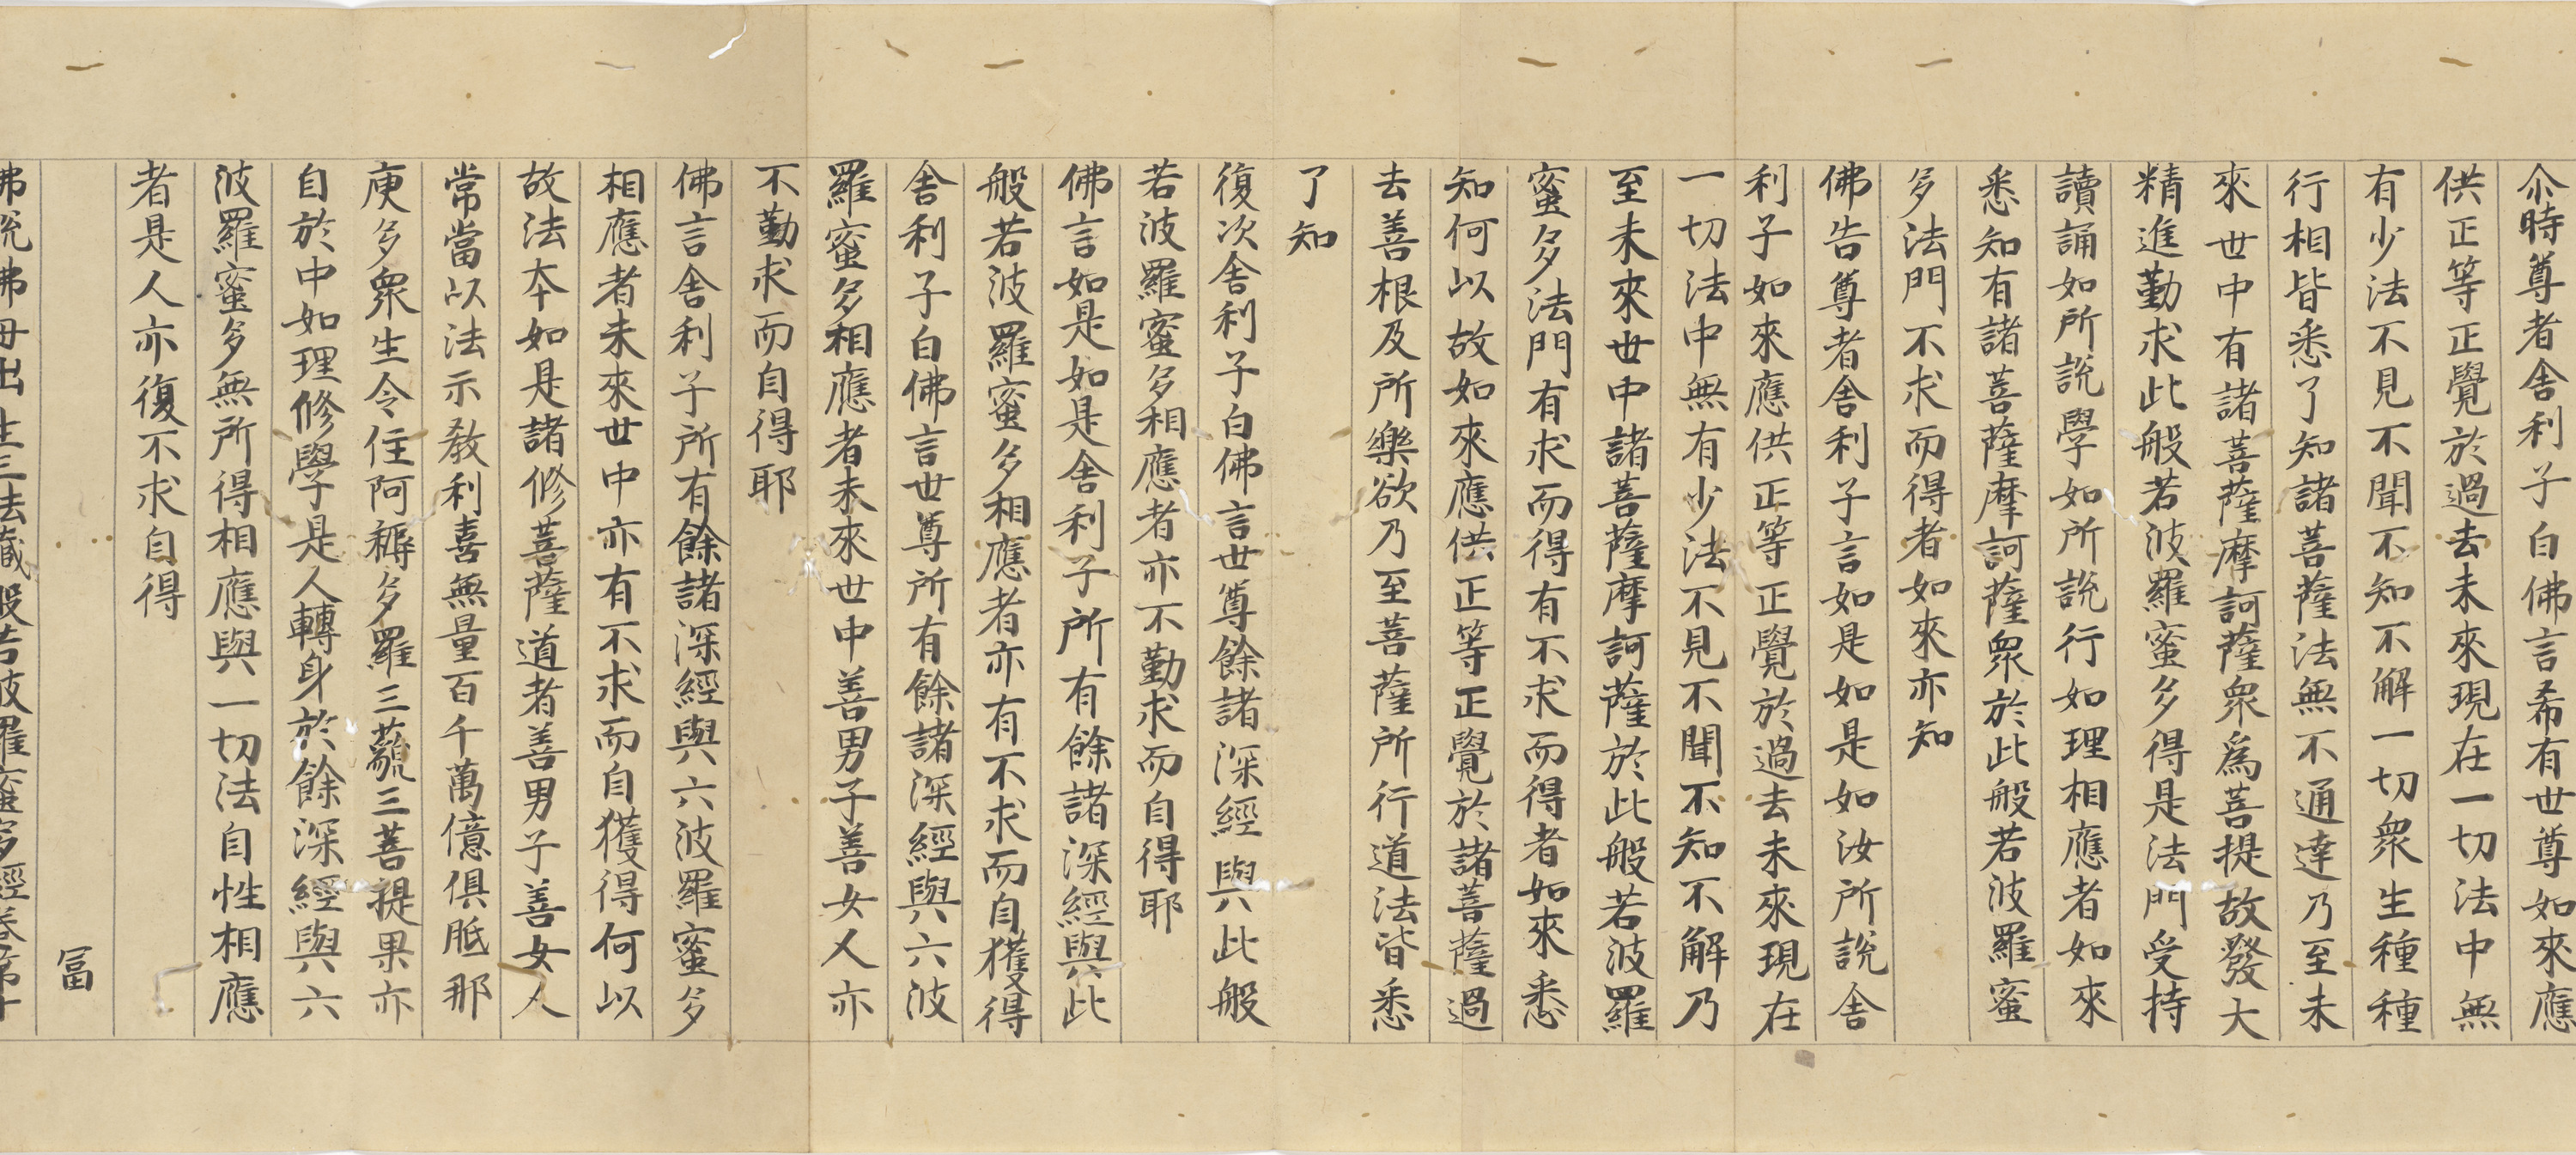 尒時尊者舍利子白佛言希有世尊如來應
供正等正覺於過去未來現在一切法中無
有少法不見不聞不知不解一切衆生種種
行相皆悉了知諸菩薩法無不通達乃至未
來世中有諸菩薩摩訶薩衆爲菩提故發大
精進勤求此般若波羅蜜多得是法門受持
讀誦如所說學如所說行如理相應者如來
悉知有諸菩薩摩訶薩衆於此般若波羅蜜
多法門不求而得者如來亦知
佛告尊者舍利子言如是如是如汝所說舍
利子如來應供正等正覺於過去未來現在
一切法中無有少法不見不聞不知不解乃
至未來世中諸菩薩摩訶薩於此般若波羅
蜜多法門有求而得有不求而得者如來悉
知何以故如來應供正等正覺於諸菩薩過
去善根及所樂欲乃至菩薩所行道法皆悉
了知
復次舍利子白佛言世尊餘諸深經與此般
若波羅蜜多相應者亦不勤求而自得耶
佛言如是如是舍利子所有餘諸深經與此
般若波羅蜜多相應者亦有不求而自獲得
舍利子白佛言世尊所有餘諸深經與六波
羅蜜多相應者未來世中善男子善女人亦
不勤求而自得耶
佛言舍利子所有餘諸深經與六波羅蜜多
相應者未來世中亦有不求而自獲得何以
故法夲如是諸修菩薩道者善男子善女人
常當以法示教利喜無量百千萬億俱胝那
庾多衆生令住阿耨多羅三藐三菩提果亦
自於中如理修學是人轉身於餘深經與六
波羅蜜多無所得相應與一切法自性相應
者是人亦復不求自得
冨
佛說佛母出生三法藏般若波羅蜜多經卷第十